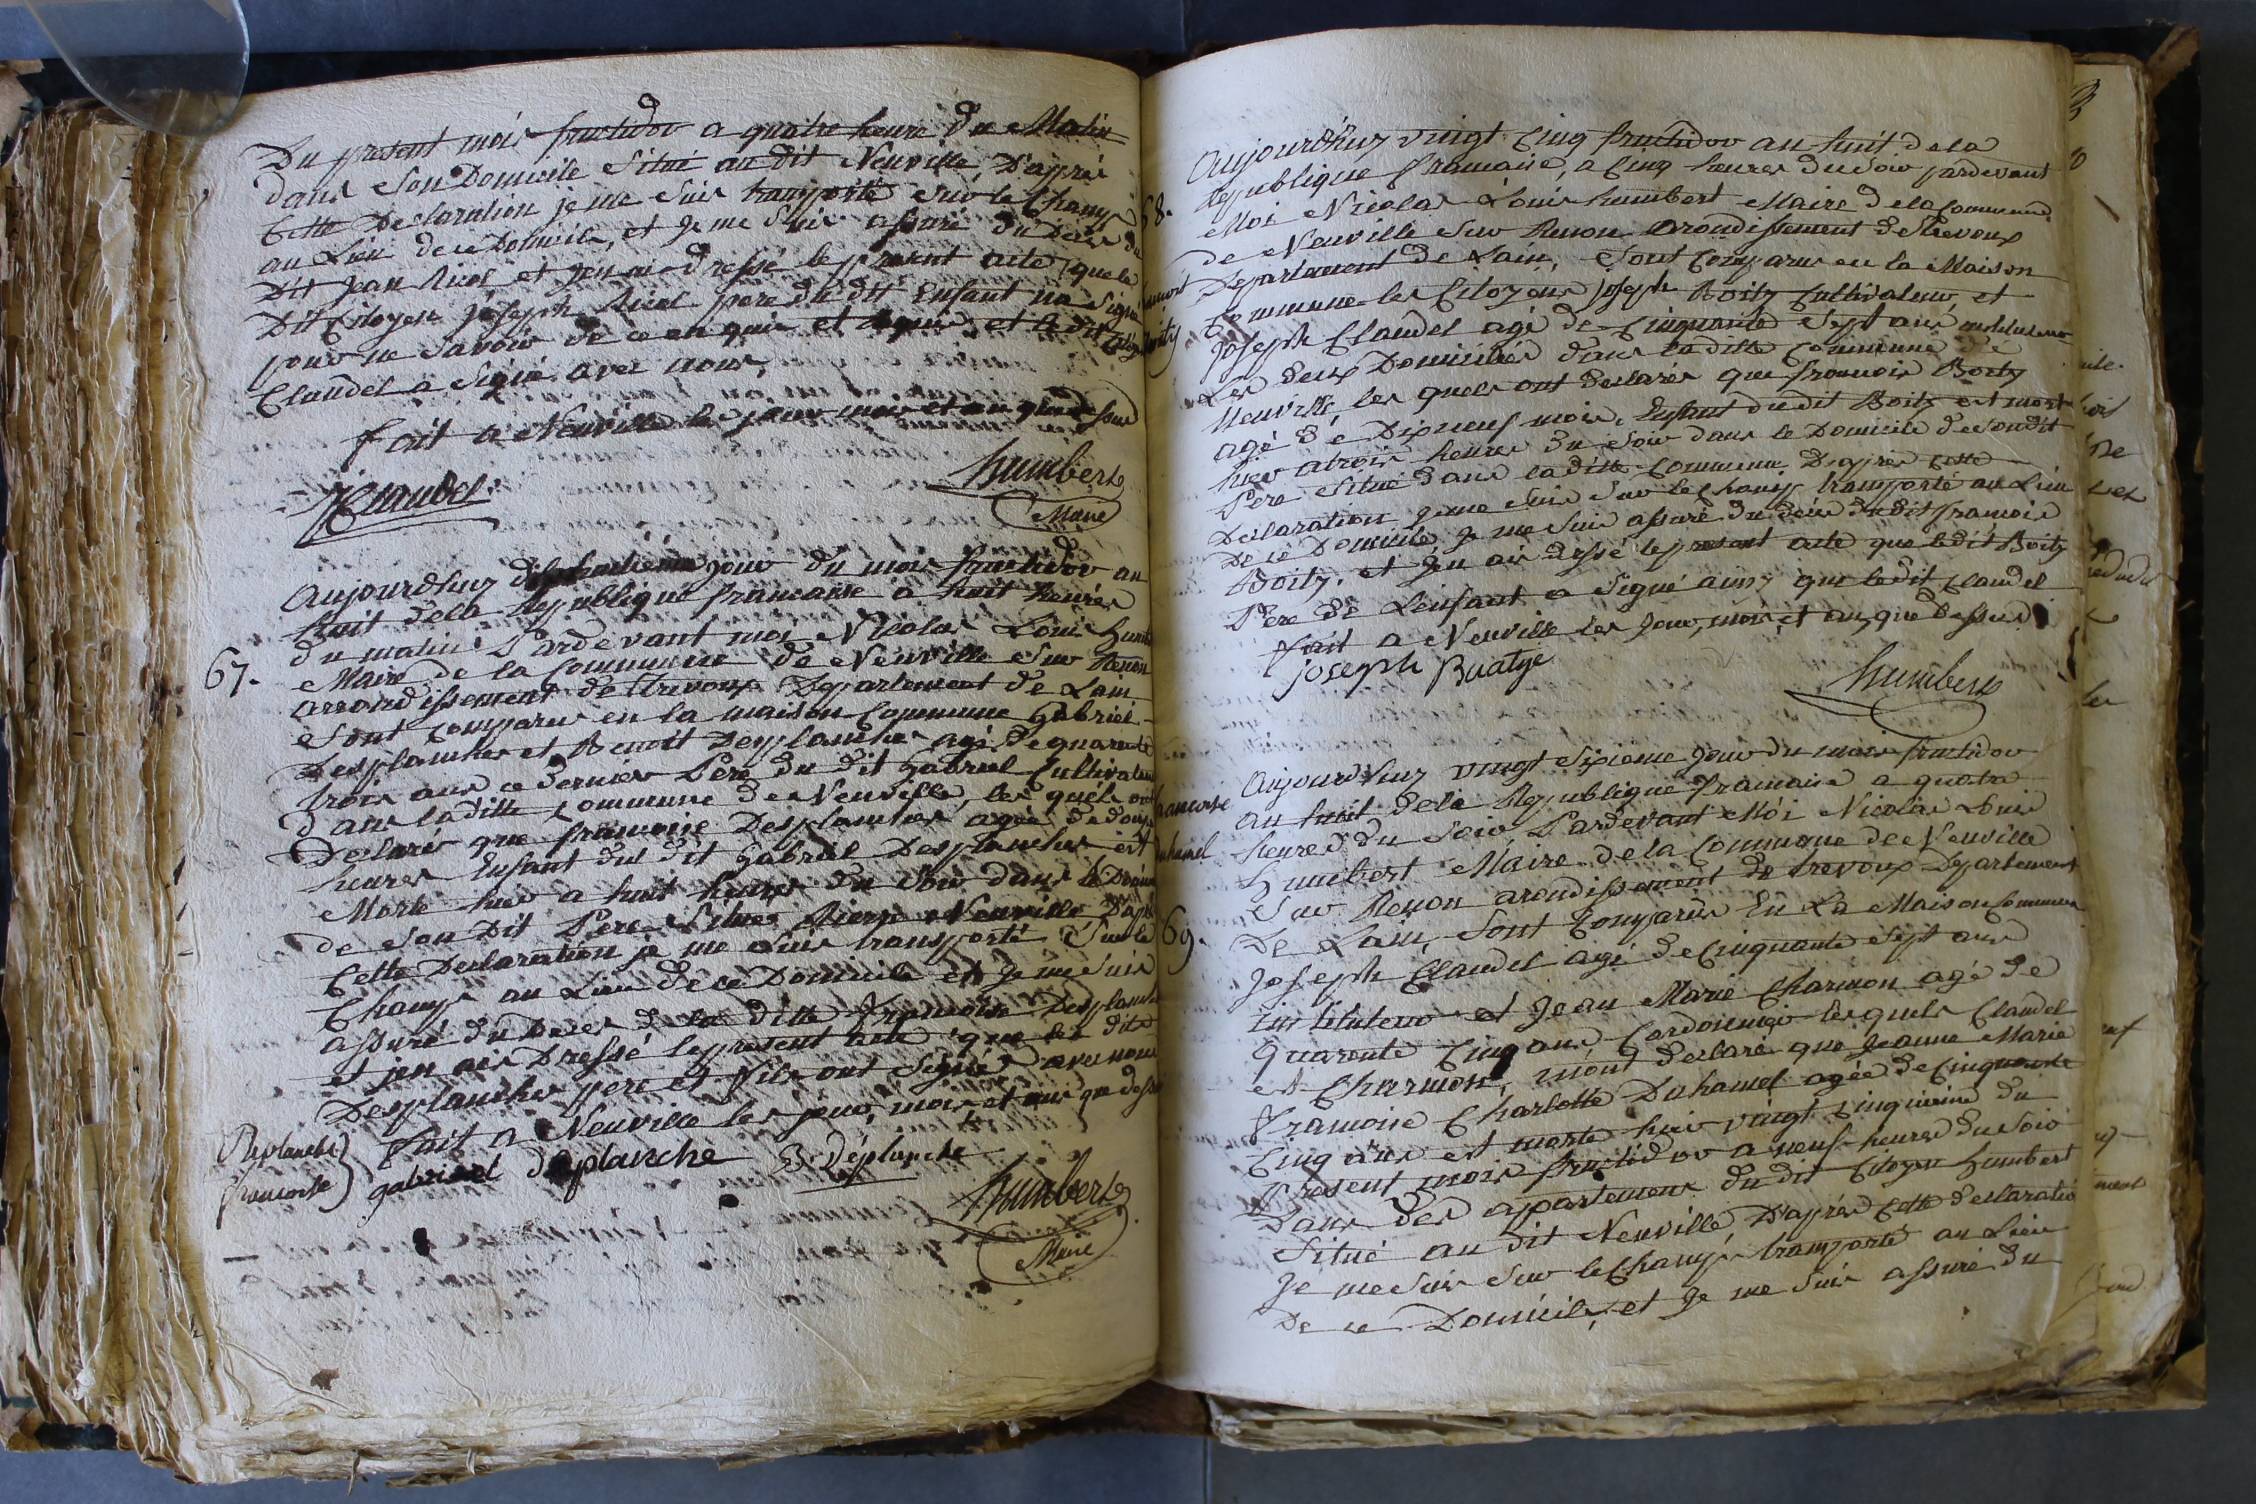 Du present mois fructidor a quatre heure du Matin
dans Son Domicile Situé au dit Neuville, D'après
Cette Declaration je me Suis transporté Sur le Champ
au Lieu de ce Domicile, et Je me Suis assuré du Décès du
Dit Jean et j'en ai dressé le present acte que le
Dit Citoyen Joseph pere du dit Enfant na Signé
pour ne Savoir de ce enquis et requis et le dit
Claudel a Signé avec nous,
Fait a Neuville les jour mois et an que dessus
JClaudel
humbert
Maire
67.
Aujourdhuy dixhuitième jour du mois fructidor an
huit de la Republique francaise a huit heures
du matin Pardevant moi Nicolas Louis humb
Maire de la Commune de Neuville Sur Renon
arrondissement de Trevoux Departement de Lain
Sont Comparu en la maison Commune Gabriel
Desplanches et Benoit Desplanches agé de quarante
trois ans ce dernier Pere du dit Gabriel Cultivateur
dans la ditte Commune de Neuville, les quels ont
Declaré que francoise Desplanches agée de douze
heures Enfant du dit Gabriel Desplanches est
Morte hier a huit heures du Soir dans le
de Son Dit Pere Situé Neuville D'après
Cette Declaration je me Suis transporté Sur le
Champ au Lieu de ce Domicile et Je me Suis
assuré du Deces de la ditte Francoise Desplanche
et jen ais Dressé le present acte que les dits
Desplanches pere et fils ont Signé avec nous
Fait a Neuville les jour, mois et ans que dessus
Deplanche
francoise
gabrieel deplanche B. Déplanche
humbert
Maire
68.
Aujourdhuy vingt Cinq fructidor an huit de la
Republique francaise, a Cinq heures du Soir pardevant
Moi Nicolas Louis humbert Maire de la Commune
de Neuville Sur Renon arondissement de Trevoux
Departement de Lain, Sont Comparus en la Maison
Commune les Citoyens Joseph Boity Cultivateur, et
Joseph Claudel agé de Cinquante Sept ans instituteur
Les deux Domiciliés dans la ditte Commune de
Neuville, les quels ont declarés que francois Boity
agé de Dixneuf mois, Enfant du dit Boity est mort
hier a trois heures du Soir dans le Domicile de Son dit
Pere Situé dans la ditte Commune D'après Cette
Declaration je me Suis Sur le Champ transporté au Lieu
De ce Domicile Je me Suis assuré du décès du dit francois
Boity. et j'en ais dressé le present acte que le dit Boity
Pere de L'enfant a Signé ainsy que le dit Claudel
Fait a Neuville les Jour, mois et an, que Dessus
joseph Buatye
humbert
francoise
Duhamel
69.
Aujourdhuy vingt Sixieme Jour du mois fructidor
an huit de la Republique francaise a quatre
heures du Soir Pardevant Moi Nicolas Louis
Humbert Maire de la Commune de Neuville
Sur Renon arondissement de trevoux Departement
De Lain, Sont Comparus En La Maison Commune
Joseph Claudel agé de Cinquante Sept ans
instituteur et Jean Marie Charmon agé de
Quarante Cinq ans Cordonnier les quels Claudel
et Charmon, m'ont declaré que Jeanne Marie
Francoise Charlotte Duhamel agée de Cinquante
Cinq ans est morte hier vingt Cinquieme du
Present mois fructidor a neuf heures du Soir
Dans des appartemens du dit Citoyen Humbert
Situé au dit Neuville D'après Cette declaratio
Je me Suis Sur le Champ transporté au Lieu
De ce Domicile, et Je me Suis assuré du